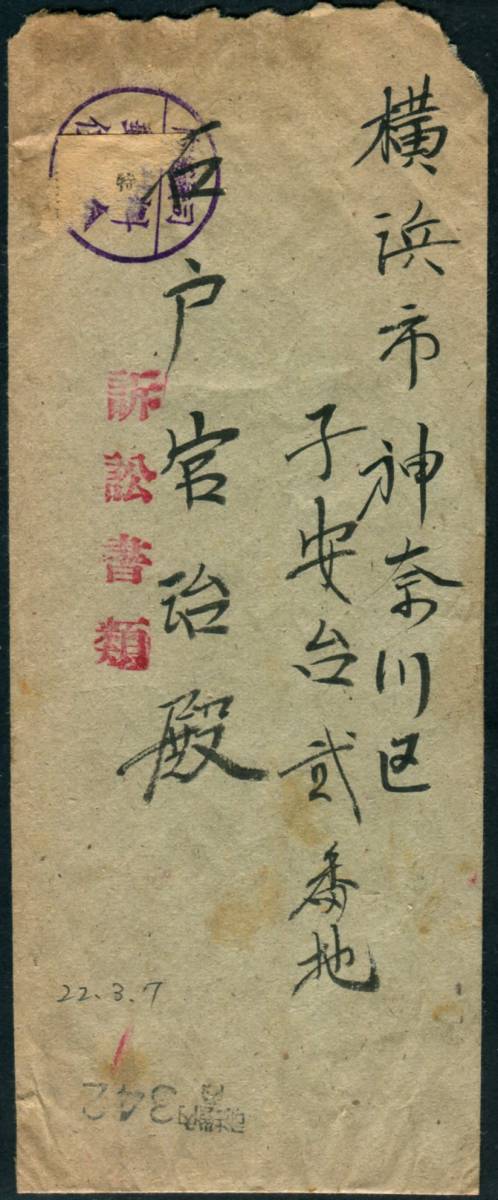 横浜市神奈川区
子安台弐番地
石戸官治殿
訴訟書類
特
22.3.7
342